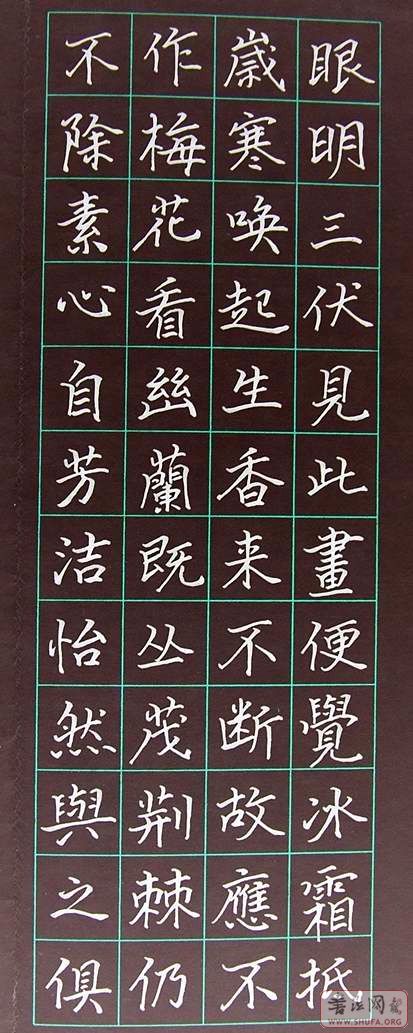 眼明三伏見此畫便覺冰霜抵
歲寒喚起生香来不断故應不
作梅花看幽蘭既丛茂荆棘仍
不除素心自芳洁怡然與之俱
书法网
WWW.SHUFA.ORG